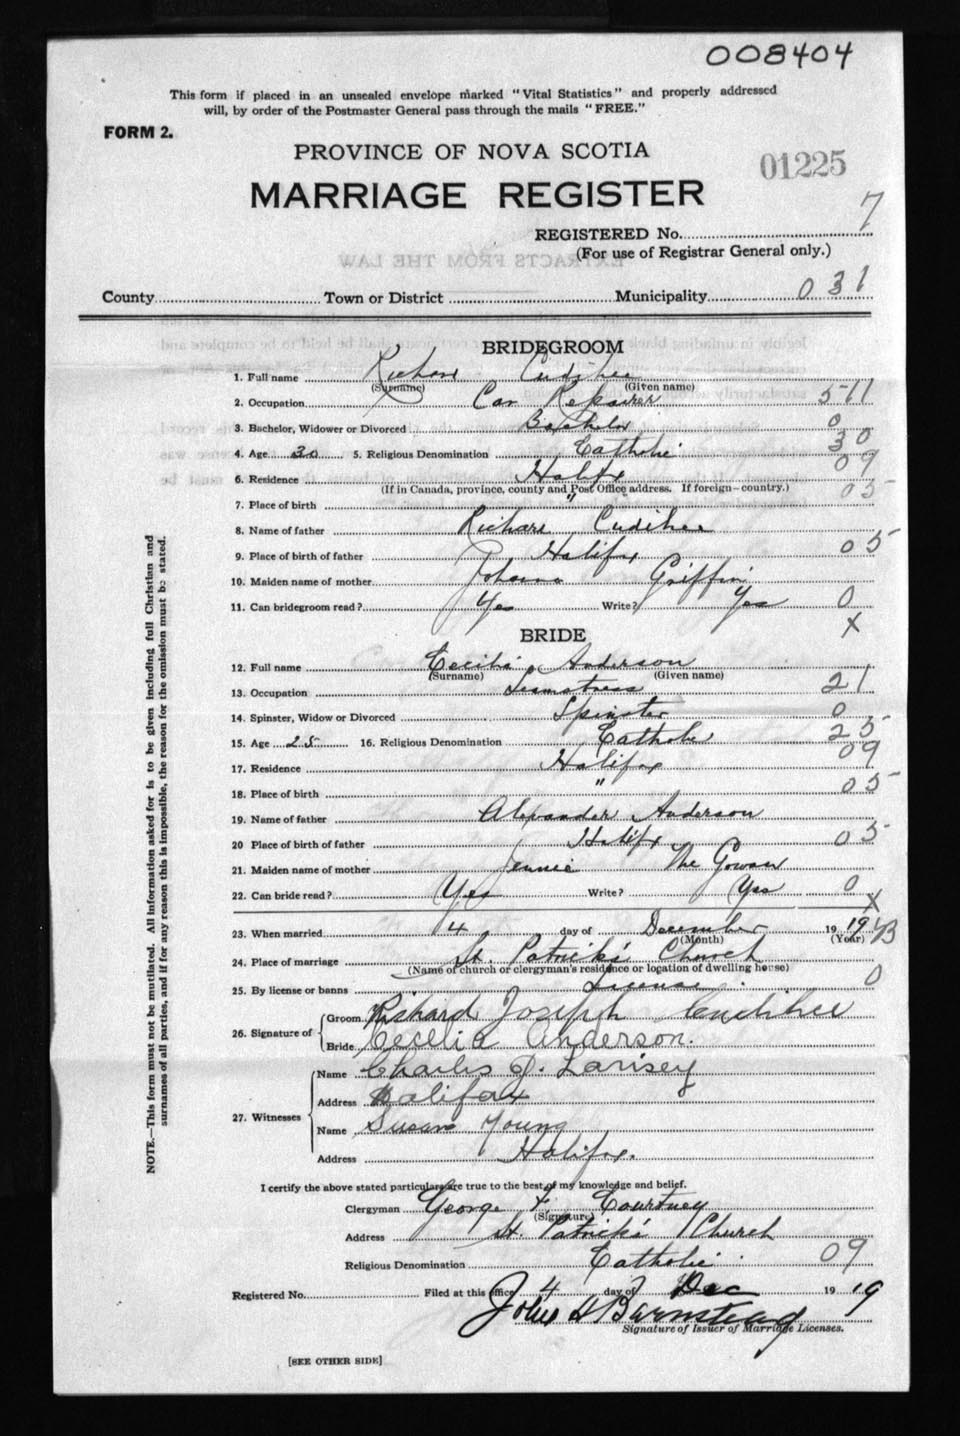 008404
This form if placed in an unsealed envelope marked "Vital Statistics" and properly addressed
will, by order of the Postmaster General pass through the mails "FREE."
FORM 2.
PROVINCE OF NOVA SCOTIA
01225
MARRIAGE REGISTER
REGISTERED No. 7
(For use of Registrar General only.)
County Town or District Municipality 031
BRIDEGROOM
1. Full name Richard Cudihee
(Surname) (Given name)
2. Occupation Car Repairer 511
3. Bachelor, Widower or Divorced Bachelor 0
4. Age 30 5. Religious Denomination Catholic 30
6. Residence Halifax 09
(If in Canada, province, county and Post Office address. If foreign—country.)
7. Place of birth " " 05
8. Name of father Richard Cudihee
9. Place of birth of father Halifax 05
10. Maiden name of mother Johanna Griffin
11. Can bridegroom read? Yes Write? Yes 0
X
BRIDE
12. Full name Cecilia Anderson
(Surname) (Given name)
13. Occupation Seamstress 21
14. Spinster, Widow or Divorced Spinster 0
15. Age 25 16. Religious Denomination Catholic 25
17. Residence Halifax 09
18. Place of birth " 05
19. Name of father Alexander Anderson
20 Place of birth of father Halifx 05
21. Maiden name of mother Jennie Mc Gowan
22. Can bride read? Yes Write? Yes 0
X
23. When married 4 day of December 19 19 43
(Month) (Year)
24. Place of marriage St. Patrick's Church
(Name of church or clergyman's residence or location of dwelling house)
25. By license or banns License 0
26. Signature of Groom Richard Joseph Cudihee
Bride Cecelia Anderson.
27. Witnesses Name Charles J. Larisey
Address Halifax
Name Susan Young
Address Halifax.
I certify the above stated particulars are true to the best of my knowledge and belief.
Clergyman George F. Courtney
(Signature)
Address St. Patrick's Church
Religious Denomination Catholic 09
Registered No. Filed at this office 4 day of Dec 19 19
John H Barnstead
Signature of Issuer of Marriage Licenses.
[SEE OTHER SIDE]
NOTE.—This form must not be mutilated. All information asked for is to be given including full Christian and
surnames of all parties, and if for any reason this is impossible, the reason for the omission must be stated.